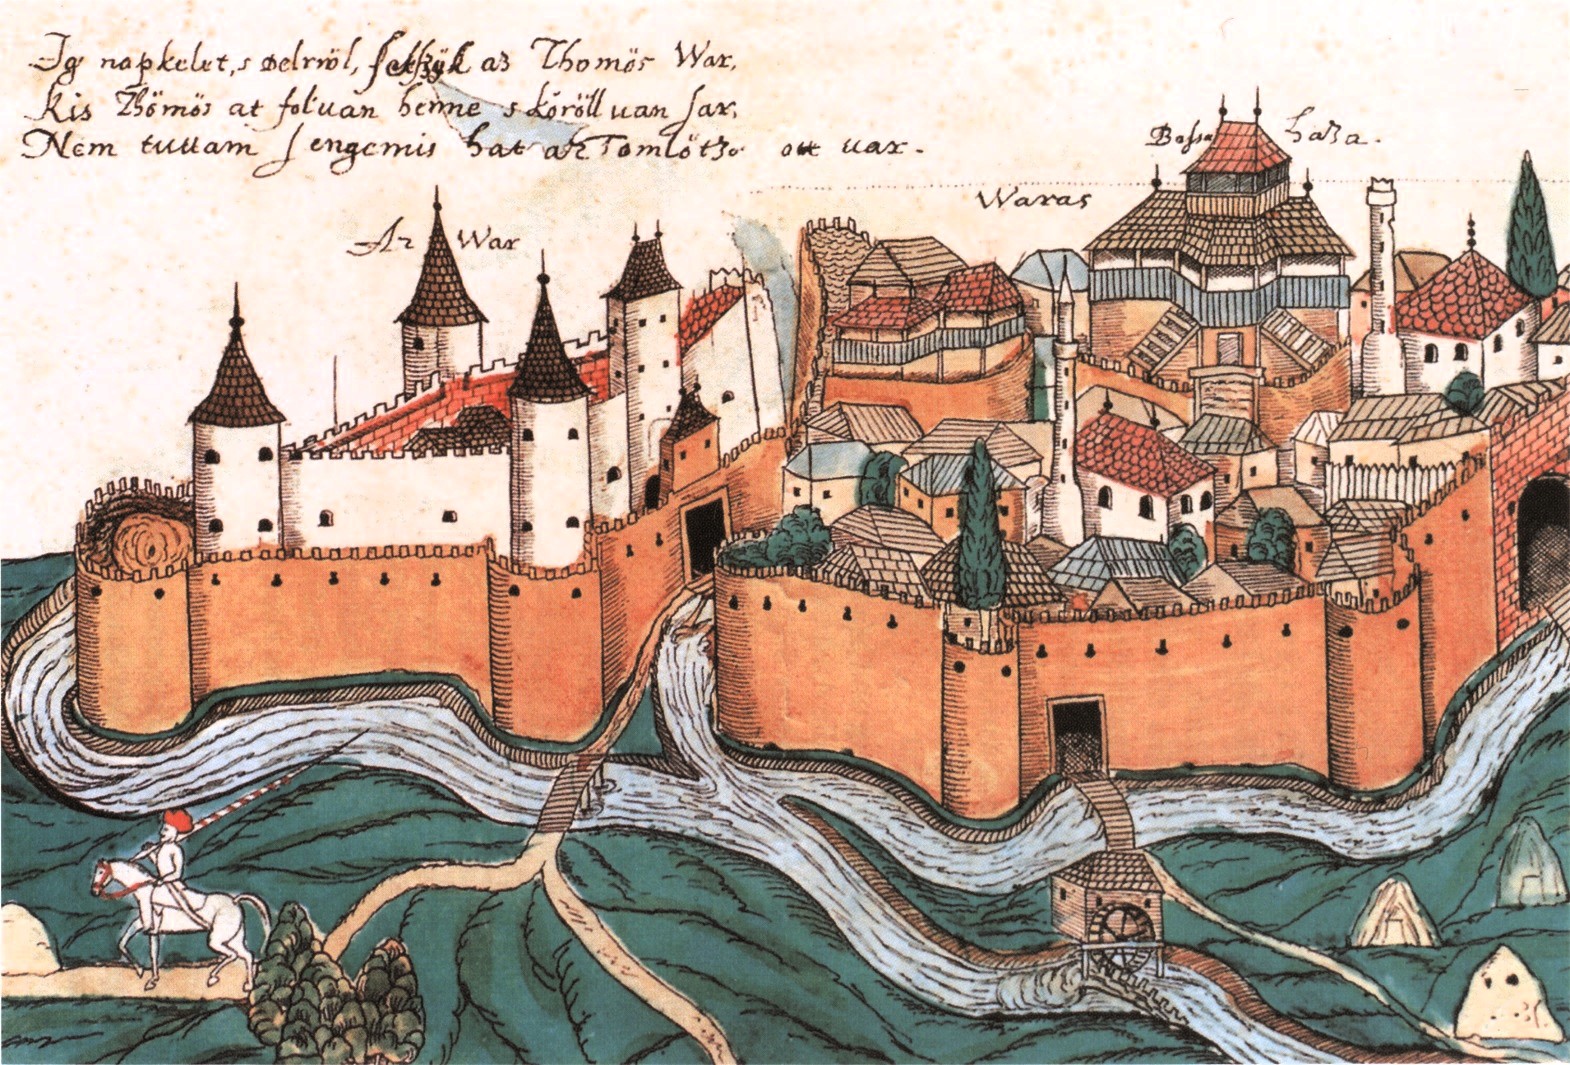 Ig napkelet,s delrwl, fekszyk az Thomös War,
Kis Thömös at foliuan benne s köröll uan sar,
Nem tuttam s engemis hat az Tomlötze ott uar.
Az War
Waras
Bassa haza.